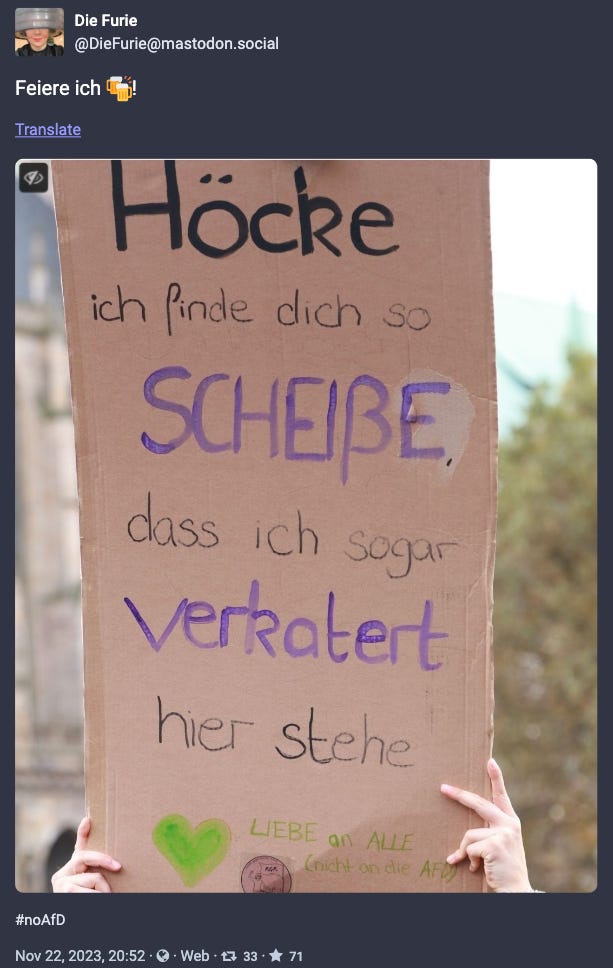 Die Furie
@DieFurie@mastodon.social
Feiere ich 🍻!
Translate
Höcke
ich finde dich so
SCHEIßE,
dass ich sogar
verkatert
hier stehe
LIEBE an ALLE
(nicht an die AFD)
#noAfD
Nov 22, 2023, 20:52 · Web · 33 · 71